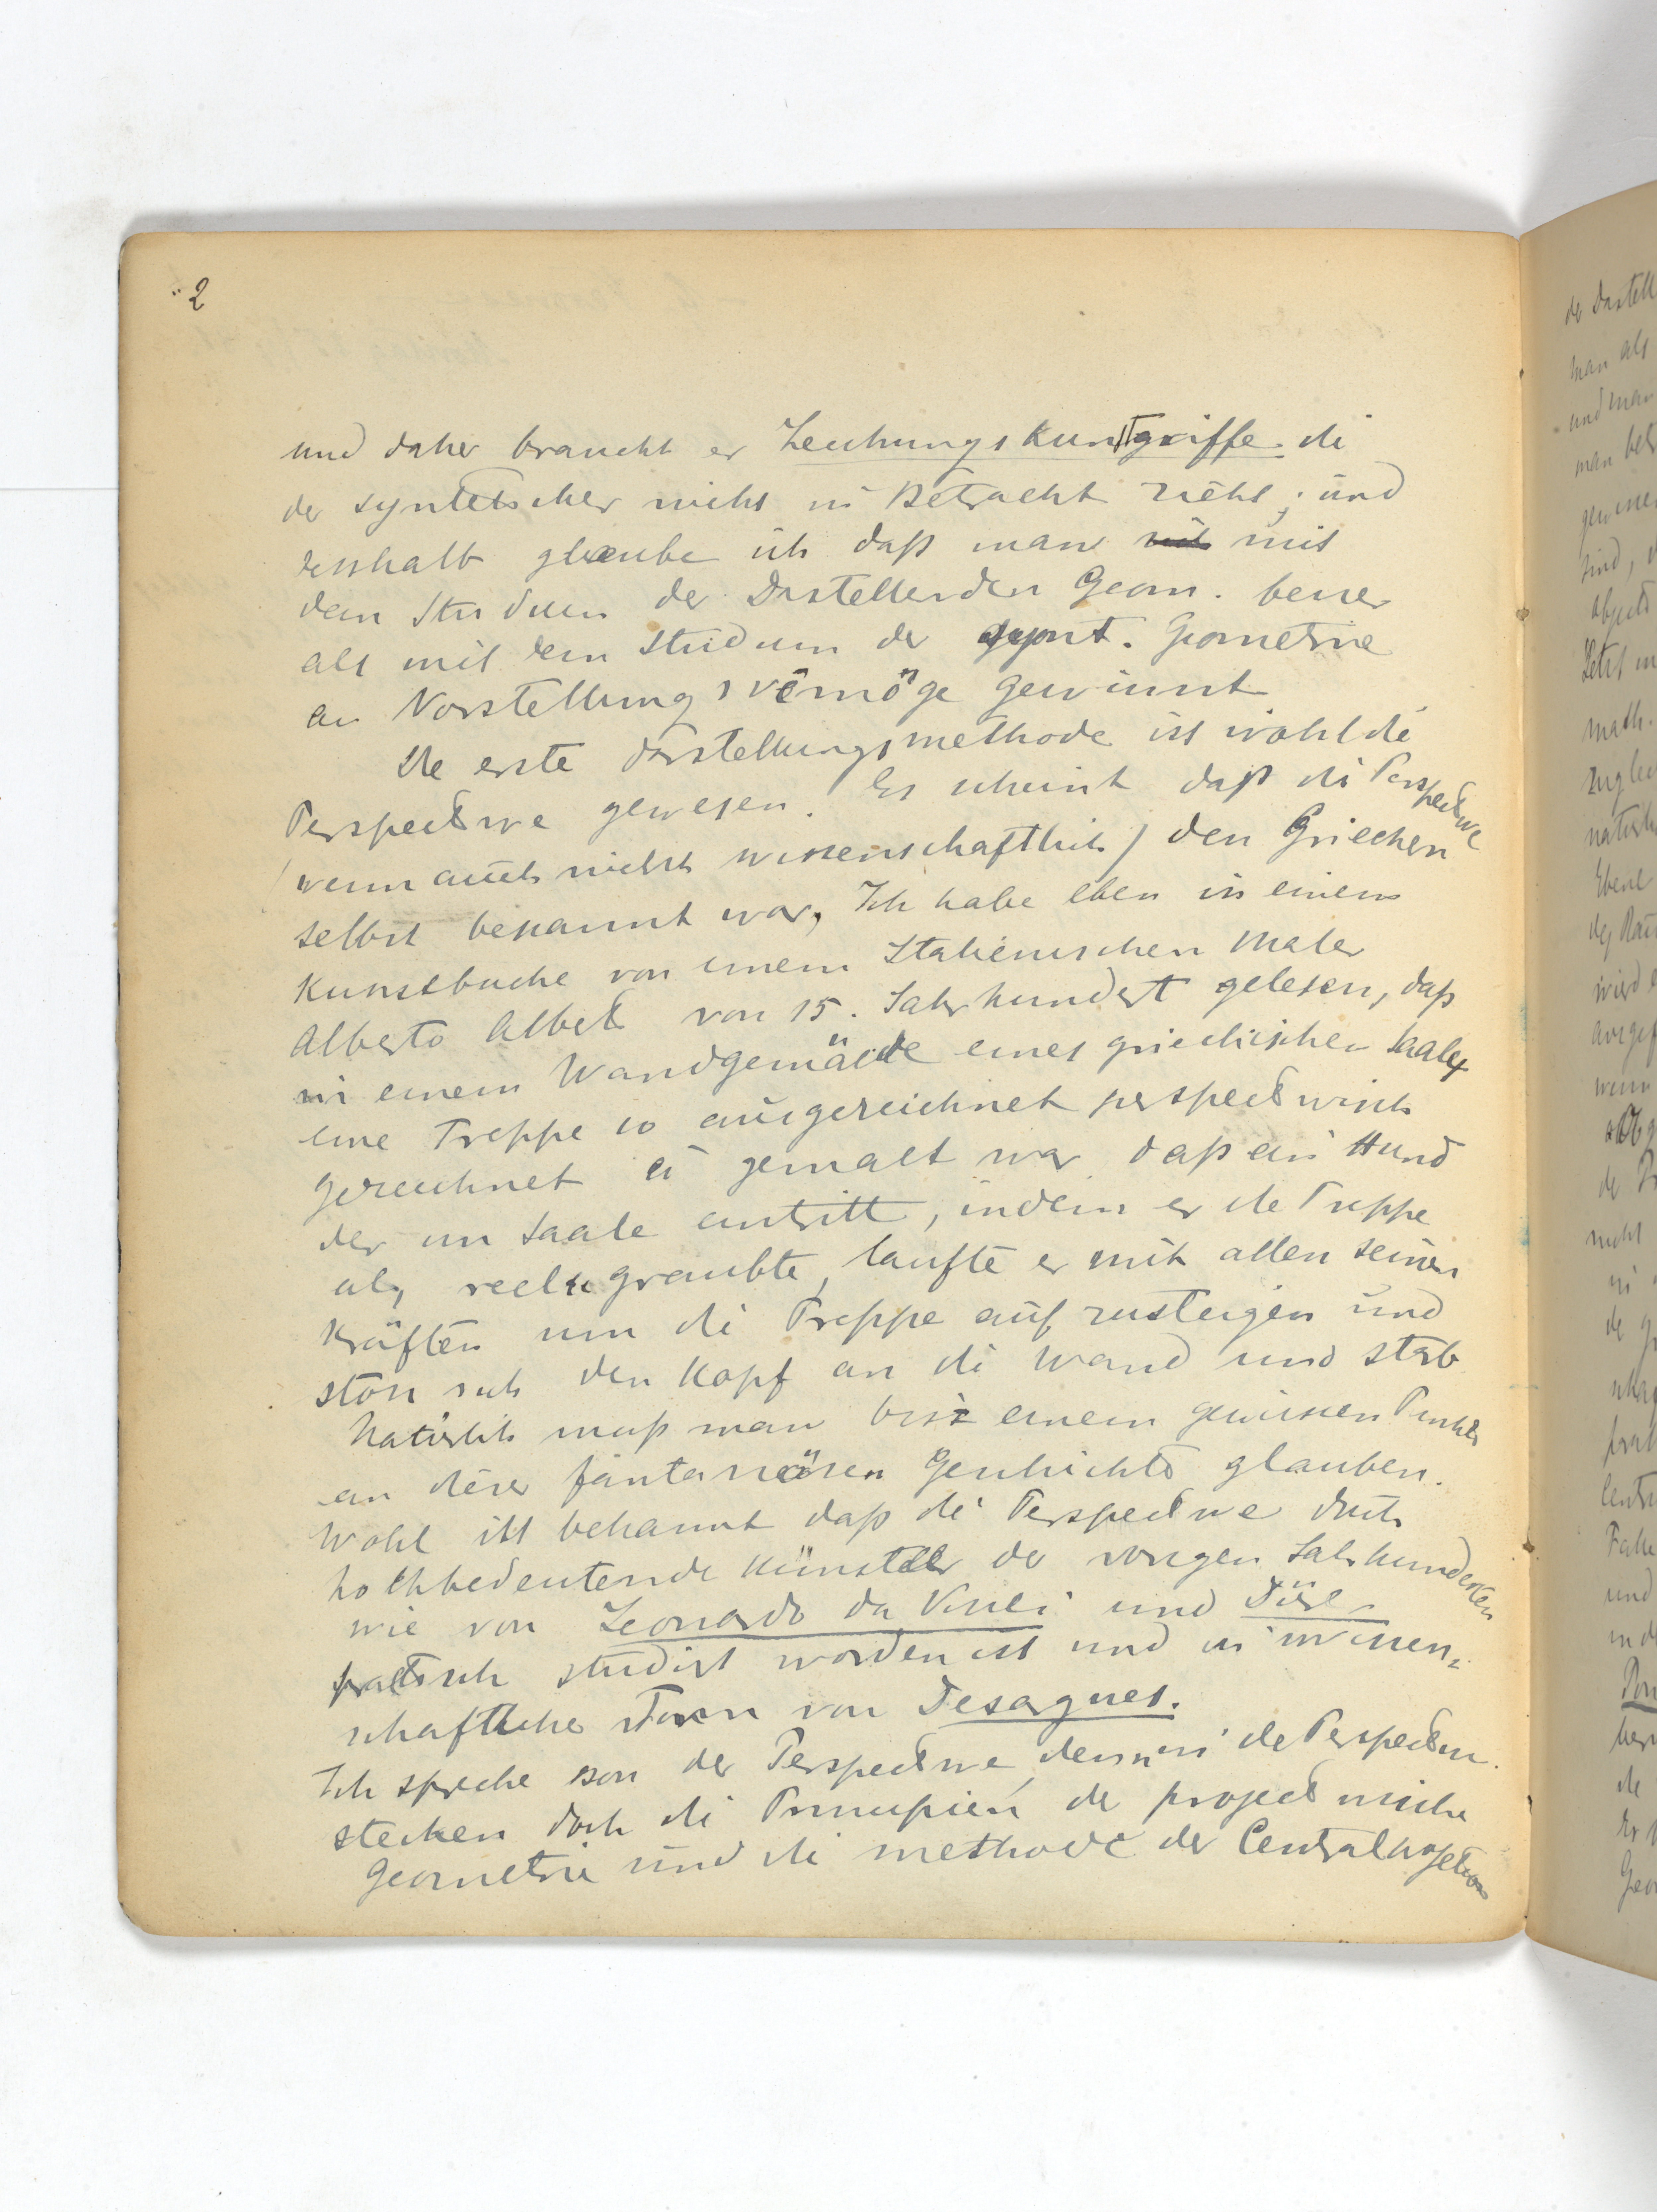 2
und daher braucht er Zeichungskunstgriffe di
der syntetscher nicht in Betracht zieht; und
desshalb glaube ich daß man mit
dem Studium der Dastellenden Geom. besser
als mit dem Studium der synt. Geometrie
an Vorstellungsvermöge gewinnt
Die erste Darstellungsmethode ist wohl di
Perspective gewesen. Es scheint daß di Perspective
(wenn auch nicht wissenschaftlich) den Griechen
selbst bekannt war, Ich habe eben in einem
Kunstbuche von einem Italienischen Maler
Alberto Alberti von 15. Jahrhundert gelesen, daß
in einem Wandgemälde eines griechischen Saales
eine Treppe so ausgezeichnet perspectivisch
gezeichnet u gemalt war daß ein Hund
der im Saale eintritt, indem er die Treppe
als reell graubte, laufte er mit allen seinen
Kräften um di Treppe auf zusteigen und
stoss sich den Kopf an di Wand und starb
Natürlich muß man bis z einem gewissen Punkte
an dieser fantasiösen Geschichte glauben.
Wohl ist bekannt daß di Perspective durch
hochbedeutende Künstler der vorigen Jahrhunderten
wie von Leonardo da Vinci und Dürer
practisch studirt worden ist und in wissen-
schaftliche Form von Desargues.
Ich spreche von der Perspective, denn in die Perspective
stecken doch di Principien der projectivische
Geometrie und di methode der Centralprojetion
de Dastell
man als
und man
man bet
gewisse
sind, d
math.
Ebene
nicht
und